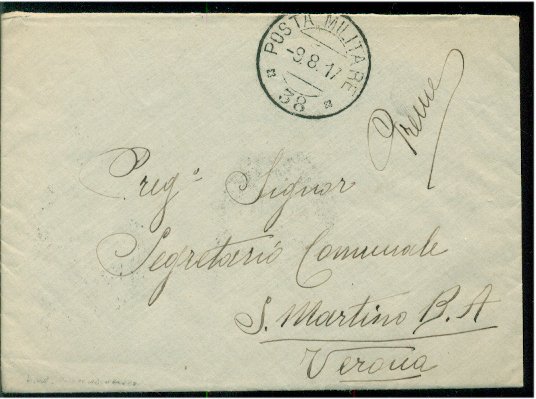 POSTA MILITARE
-9.8.17
38
Preme
Preg.º Signor
Segretario Comunale
S. Martino B. A
Verona